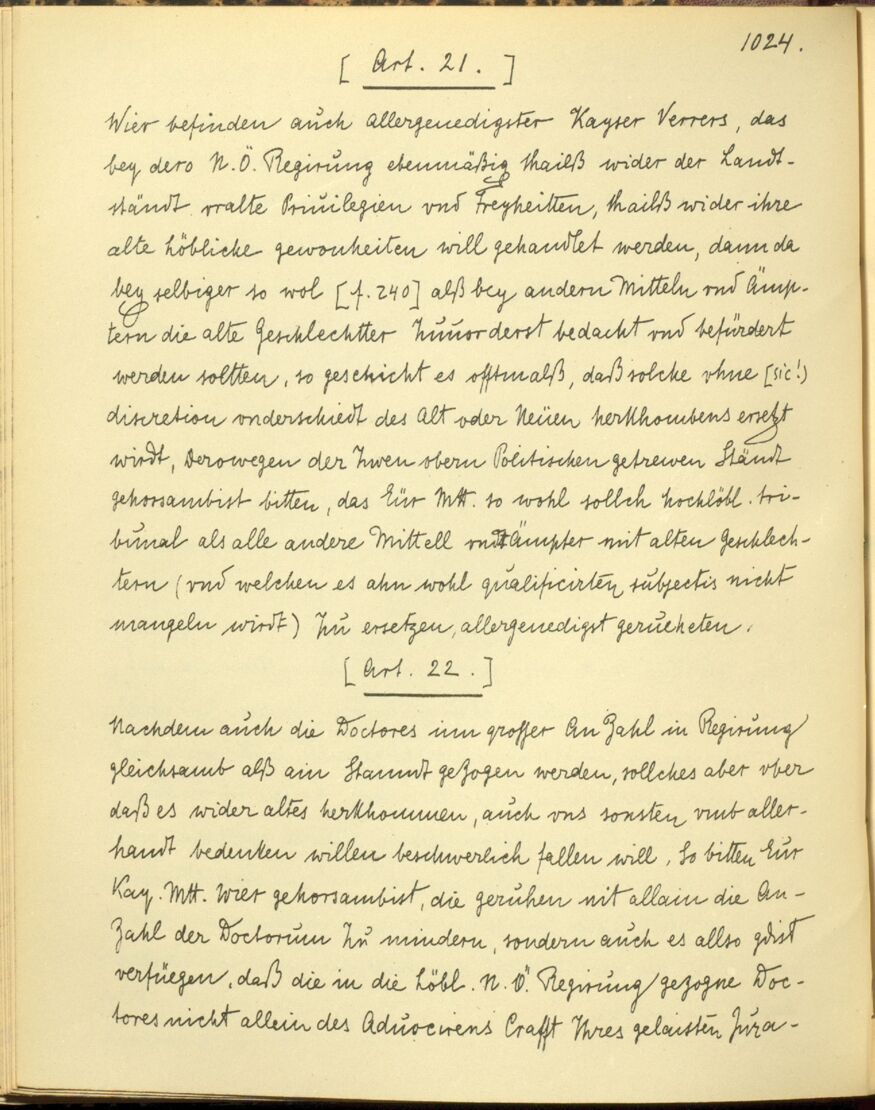 1024.
[ Art. 21. ]
Wier befinden auch allergenedigster Kayser Verrers, das
bey dero N.Ö. Regirung ebenmäßig thailß wider der Landt-
ständt vralte Priuilegien vnd Freyheitten, thailß wider ihre
alte löbliche gewonheiten will gehandlet werden, dann da
bey selbiger so wol [f. 240] alß bey andern Mitteln vnd Ämp-
tern die alte Geschlechtter Zuuorderst bedacht vnd befürdert
werden soltten, so geschicht es offtmalß, daß solche ohne [sic!)
discretion vnderschiedt des Alt oder Neüen herkhombens ersetzt
wirdt, Derowegen der Zwen obern Politischen getrewen Ständt
gehorsambist bitten, das Eür Mtt. so wohl sollch hochlöbl. tri-
bunal als alle andere Mittell vndt Ämpter mit alten Geschlech-
tern (vnd welchen es ahn wohl qualificirten subjectis nicht
mangeln wirdt) Zu ersetzen, allergenedigst gerucheten.
[ Art. 22. ]
Nachdem auch die Doctores inn grosser AnZahl in Regirung
gleichsamb alß ain Stanndt geZogen werden, sollches aber vber
daß es wider altes herkhommen, auch vns sonsten vmb aller-
handt bedenken willen beschwerlich fallen will, So bitten Eur
Kay. Mtt. Wier gehorsambist, die geruhen nit allain die An-
Zahl der Doctorum Zu mindern, sondern auch es allso gdist
verfüegen, daß die in die Löbl. N.Ö. Regirung gezogne Doc-
tores nicht allein des Aduocirens Crafft Ihres gelaisten Jura-